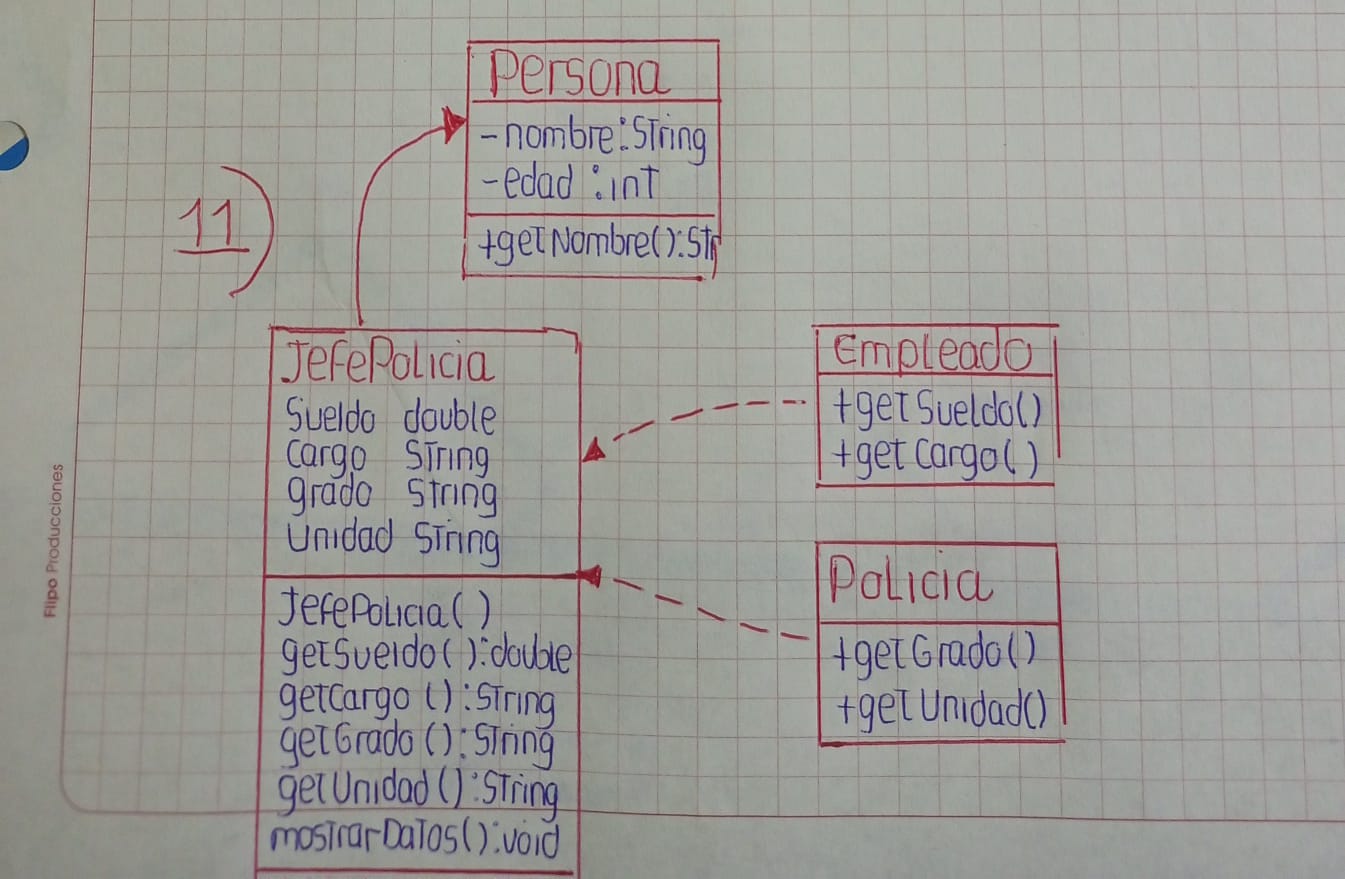 11)
Persona
-nombre:String
-edad :int
+getNombre():Str
JefePolicia
Sueldo double
Cargo String
grado String
Unidad String
JefePolicia()
getSueldo():double
getCargo():String
getGrado():String
getUnidad():String
mostrarDatos():void
Empleado
+getSueldo()
+getCargo()
Policia
+getGrado()
+getUnidad()
Flipo Producciones